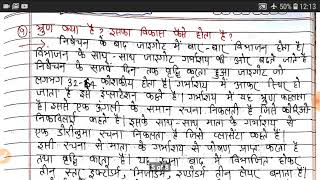 12:13
(9) भ्रूण क्या है ? इसका विकास कैसे होता है ?
→ निषेचन के बाद जाइगोट में बार-बार विभाजन होता है।
विभाजन के साथ-साथ जाइगोट गर्भाशय की ओर बढ़ते जाते है
निषेचन के सातवें दिन तक वृद्धि करता हुआ जाइगोट जो
लगभग 32-64 कोशिकीय होता है। गर्भाशय में आकर स्थिर हो
जाता है इसे इंप्लांटेशन कहते है। गर्भाशय में यह भ्रूण कहलाता
है। इससे एक ऊंगली के समान रचना निकलती है जिसे कोरिओनिक
विलाई कहते है। इसके साथ-साथ माता के गर्भाशय से
एक रचना निकलती है जिसे प्लासेंटा कहते है।
इसी रचना से माता के गर्भाशय से पोषण प्राप्त करता है
तथा वृद्धि करता है। यह रचना बाद में विभाजित होकर
तीन स्तर इक्टोडर्म, मिजोडर्म, इण्डोडर्म तीन लेयर बनाता है।